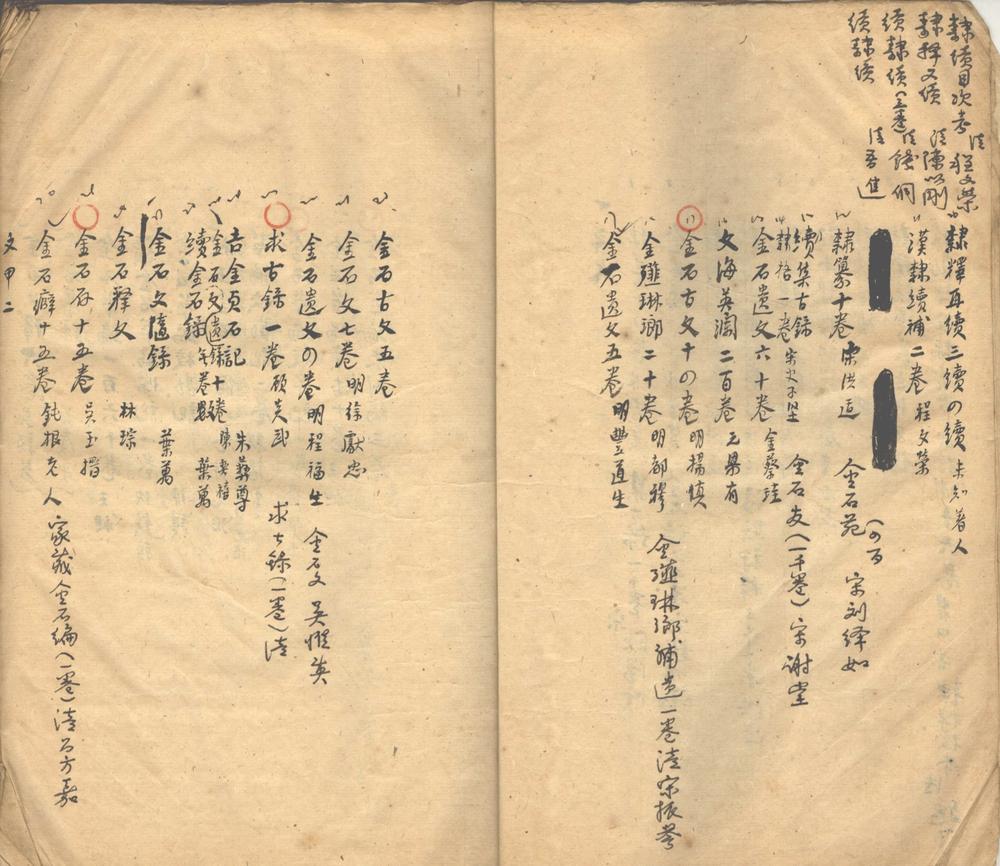 隸續目次考 清 程文榮
隸釋又續 清 陳以剛
續隸續（三卷） 清 錢侗
續隸續 清 吾進
隸釋再續三續の續 未知著人
漢隸續補二卷 程文榮
隸纂十卷 宋洪适 金石苑（の百 宋刘绎如
續集古錄
隸格一卷 宋史子坚
金石遺文六十卷 金蔡珪 金石友（一千卷）宋谢堂
文海英瀾二百卷 元
金石古文十の卷 明楊慎
金薤琳瑯二十卷 明都穆 金薤琳瑯補遺一卷清宋振譽
金石遺文五卷 明豐道生
金石古文五卷
金石文七卷 明徐獻忠
金石遺文の卷 明程福生 金石文 吴
求古錄一卷 顧炎武 求古錄（一卷）清
吉金貞石記 朱彝尊
金石文遺錄十卷 陳奕禧
續金石錄 葉萬
金石文隨錄 葉萬
金石釋文 林琮
金石存十五卷 吳玉搢
金石癖十五卷 鈍根老人 家藏金石編（一卷）清方嘉
文甲二